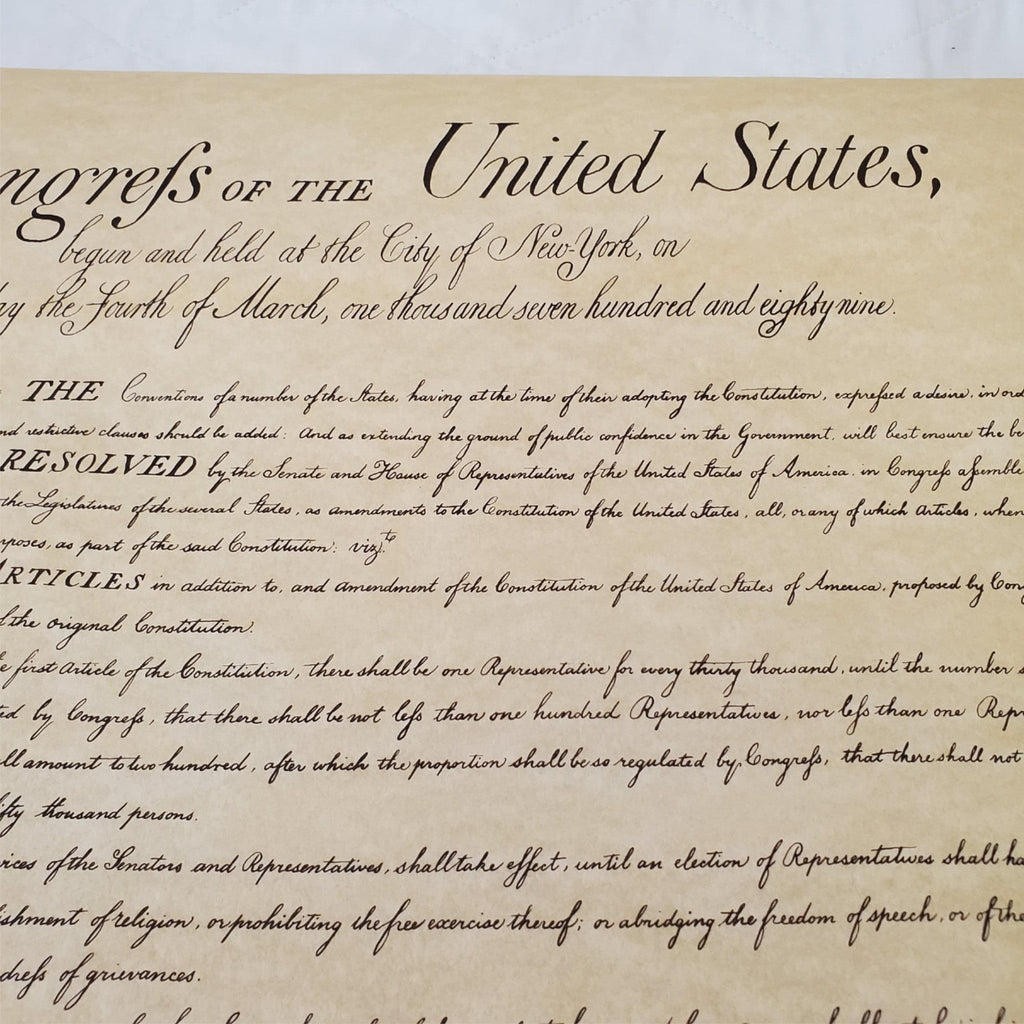 ngreſs OF THE United States,
begun and held at the City of New-York, on
ay the Fourth of March, one thousand seven hundred and eighty nine.
THE Conventions of a number of the States, having at the time of their adopting the Constitution, expreſsed a desire, in ord
nd restrictive clauses should be added: And as extending the ground of public confidence in the Government, will best ensure the be
RESOLVED by the Senate and House of Representatives of the United States of America, in Congreſs aſsemble
the Legislatures of the several States, as amendments to the Constitution of the United States, all, or any of which Articles, when
rposes, as part of the said Constitution: vizt.
ARTICLES in addition to, and amendment of the Constitution of the United States of America, proposed by Cong
f the original Constitution.
e first Article of the Constitution, there shall be one Representative for every thirty thousand, until the number s
ted by Congreſs, that there shall be not leſs than one hundred Representatives, nor leſs than one Repr
ll amount to two hundred, after which the proportion shall be so regulated by Congreſs, that there shall not
ifty thousand persons.
vices of the Senators and Representatives, shall take effect, until an election of Representatives shall ha
ishment of religion, or prohibiting the free exercise thereof; or abridging the freedom of speech, or of the
dreſs of grievances.